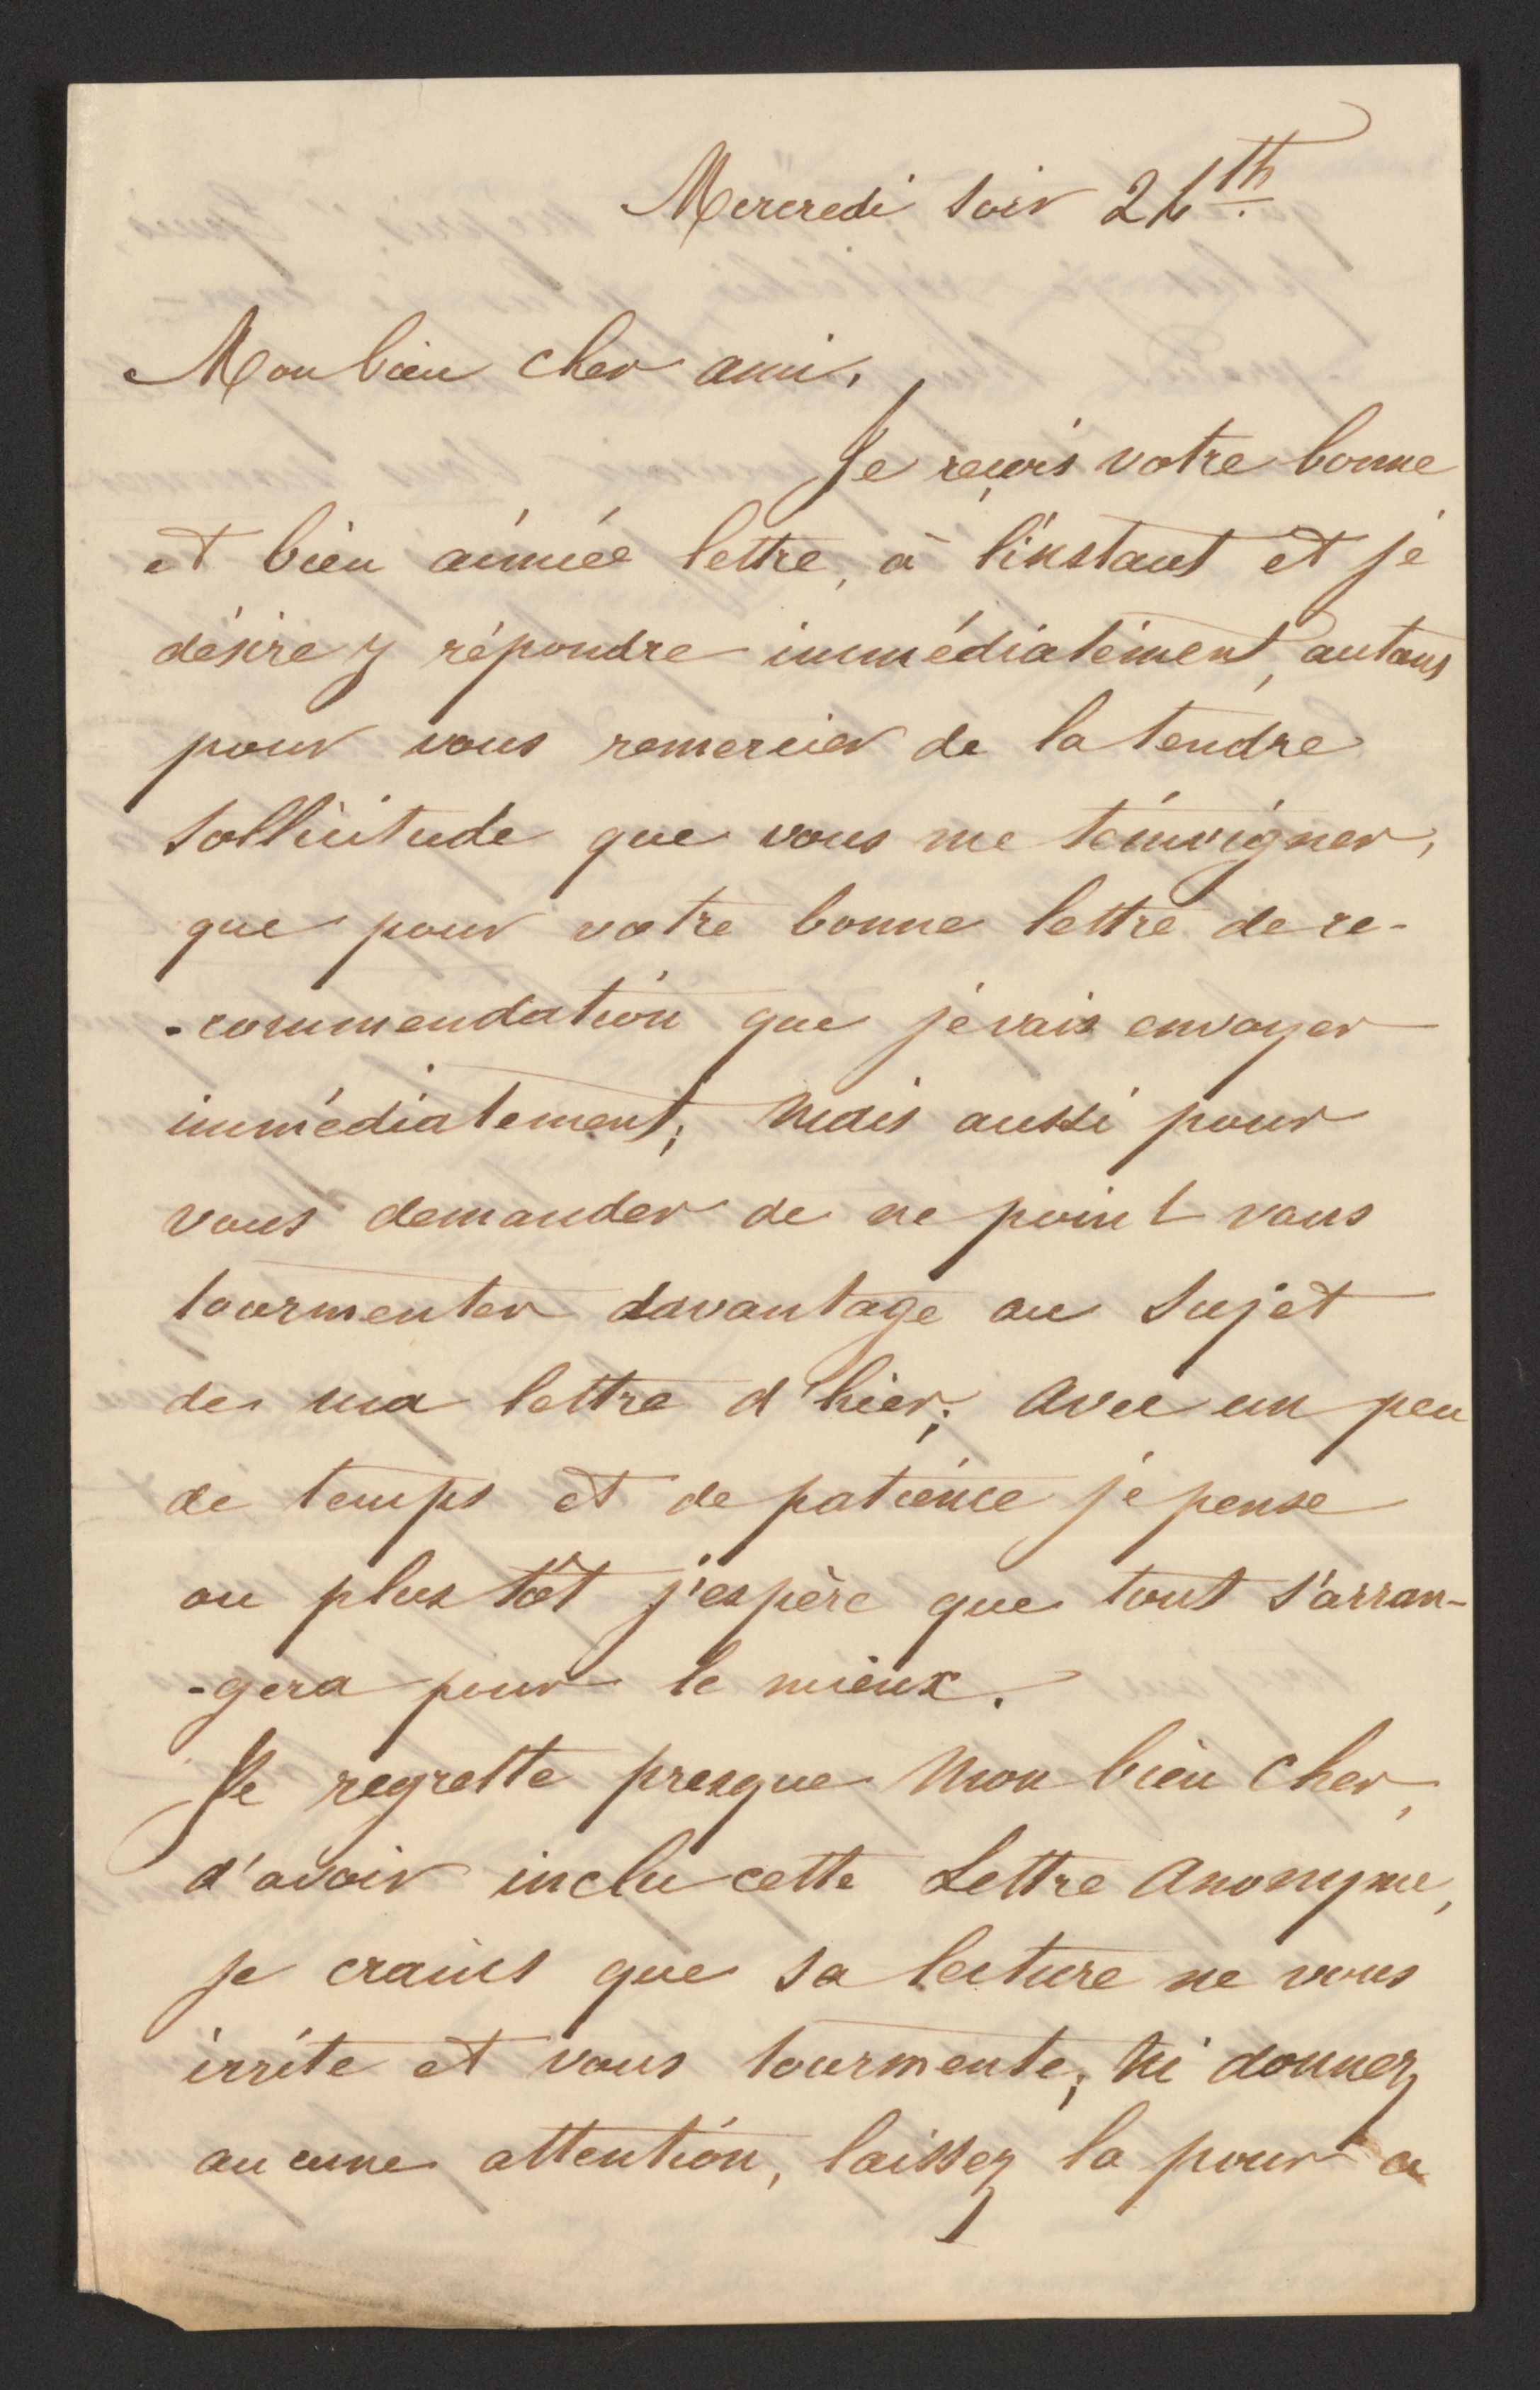 Mercredi soir 24th
Mon bien cher ami,
Je reçois votre bonne
et bien aimée lettre, à l'instant et je
désire y répondre immédiatement, autant
pour vous remercier de la tendre
sollicitude que vous me témoigner,
que pour votre bonne lettre de re-
-commendation que je vais envoyer
immédiatement; mais aussi pour
vous demander de ne point vous
tourmenter davantage au sujet
de ma lettre d'hier; avec un peu
de temps et de patience je pense
ou plus tôt j'espère que tout s'arran-
-gera pour le mieux.
Je regrette presque mon bien cher,
d'avoir inclu cette Lettre anonyme,
je crains que sa lecture ne vous
irrite et vous tourmente; ni donnez
aucune attention, laissez la pour ce